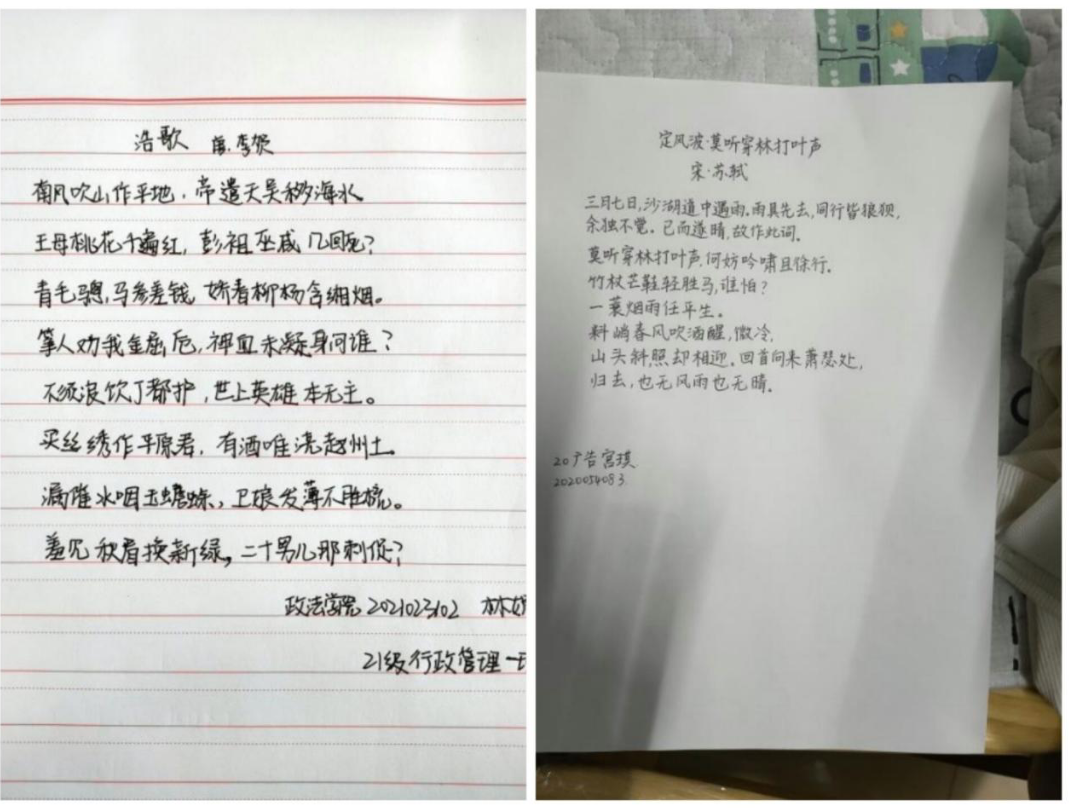 浩歌 唐·李贺
南风吹山作平地，帝遣天吴移海水
王母桃花千遍红，彭祖巫咸几回死？
青毛骢，马参差钱，娇春柳杨含缃烟。
筝人劝我金屈卮，神血未凝身问谁？
不须浪饮丁都护，世上英雄本无主。
买丝绣作平原君，有酒唯浇赵州土。
漏催水咽玉蟾蜍，卫娘发薄不胜梳。
羞见秋眉换新绿，二十男儿那刺促？
政法学院 2021023102 林
21级行政管理一
定风波·莫听穿林打叶声
宋·苏轼
三月七日，沙湖道中遇雨，雨具先去，同行皆狼狈，
余独不觉。已而遂晴，故作此词。
莫听穿林打叶声，何妨吟啸且徐行。
竹杖芒鞋轻胜马，谁怕？
一蓑烟雨任平生。
料峭春风吹酒醒，微冷，
山头斜照却相迎。回首向来萧瑟处，
归去，也无风雨也无晴。
20广告宫琪
2020054083